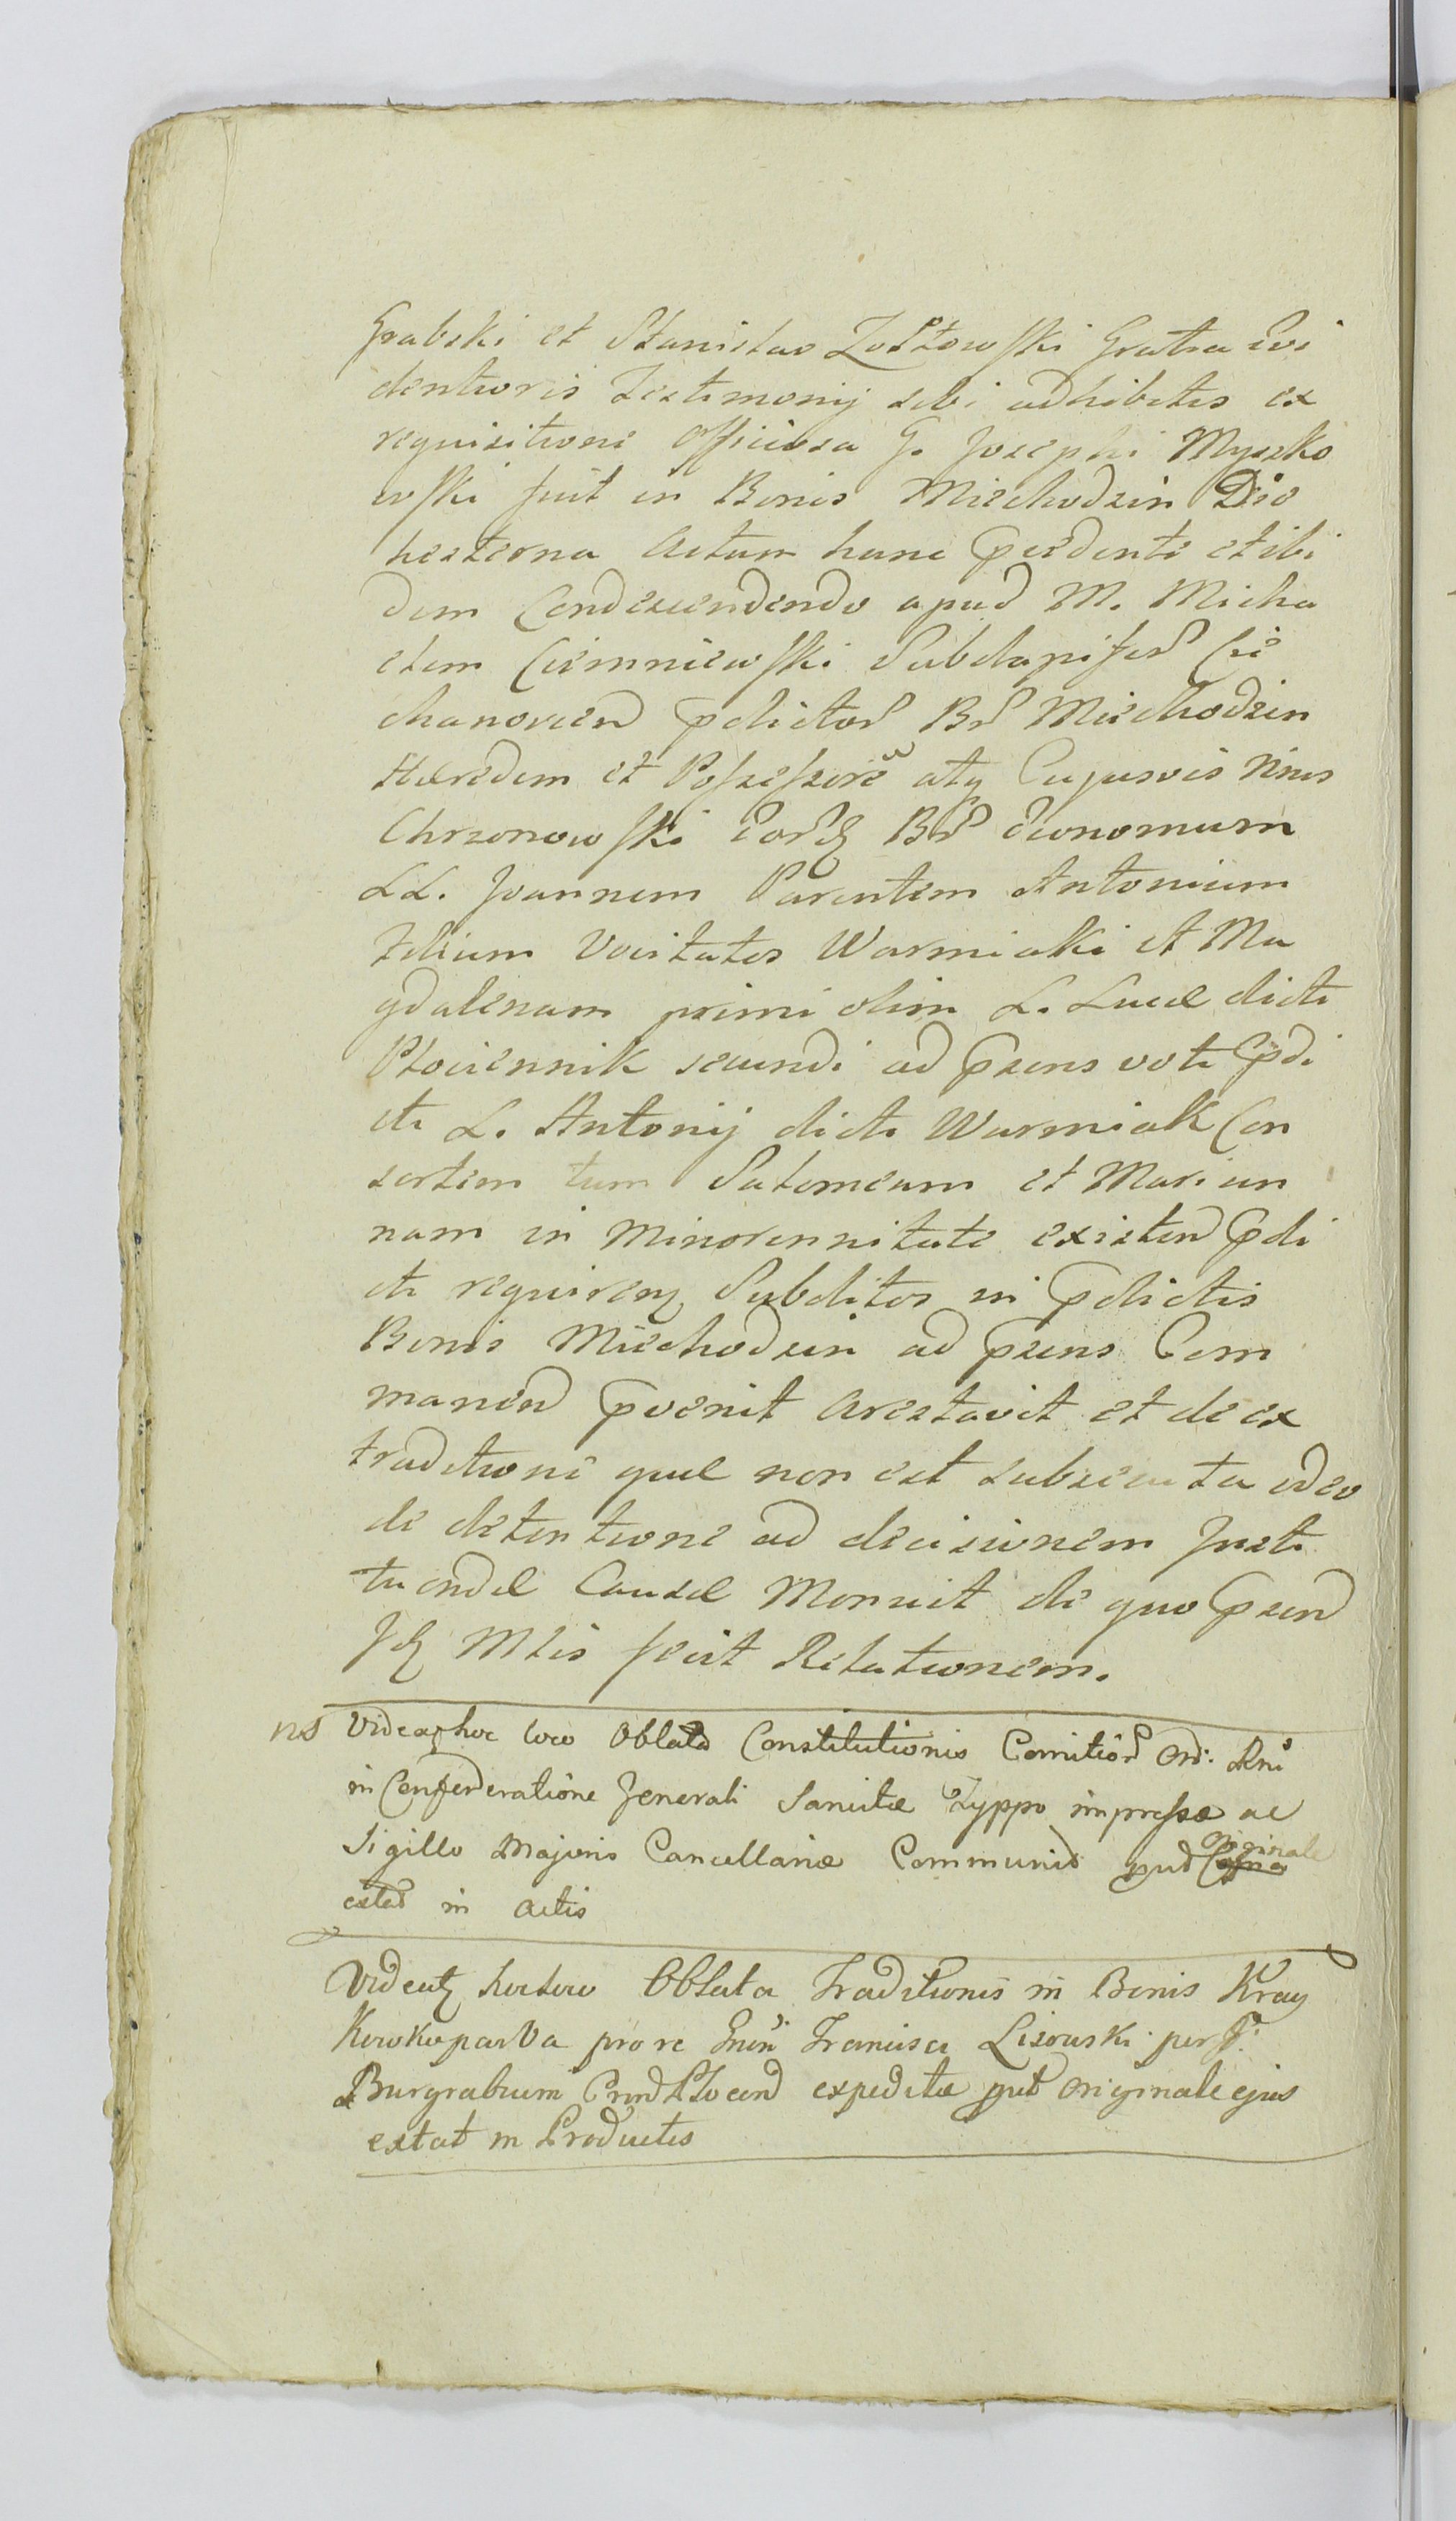 Grabski et Stanislao Zołtowski Gratia Evi
dentioris Testimonij sibi adhibitis ex
requisitione Officiosa G. Josephi Myszko
wski fuit in Bonis Miechodzin Die
hesterna Actum hunc pcedente et ibi
dem Condescendendo apud M. Micha
elem Ciemniewski Subdapiferd Cie
chanovien pdictord Brd Miechodzin
Hæredem et Possessorē atq Cujusvis Nīnis
Chrzonowski Eord Brd Œconomum
LL. Joannem Parentem Antonium
Filium Vocitatos Warmiaki et Ma
gdalenam primi olim L. Lucæ dicti
Płociennik secundi ad pæns voti pdi
cti L. Antonij dicti Warmiak Con
sortem tum Salomeam et Marian
nam in Minorennitate existen pdi
cti requiren Subditos in pdictis
Bonis Miechodzin ad pæns Com
manen pvenit Arestavit et de ex
traditione quæ non est subsecuta ideo
de detentione ad decisionem Insti
tuendæ Causæ Monuit de quo psen
Mlis fecit Relationem.
ns Videat hoc loco Oblata Constitutionis Comitiord Ord: Rni
in Confœderatione Generali Sancitæ Typpo impressæ ac
Sigillo Majoris Cancellariæ Communit put Copia Originale
extat in Actis
Videat hoc loco Oblata Traditionis in Bonis Kray
Kowko parva pro re Gnīi Francisci Lisowski per G.
Burgrabium Crnd Plocen expeditæ put Originale ejus
extat in Productis